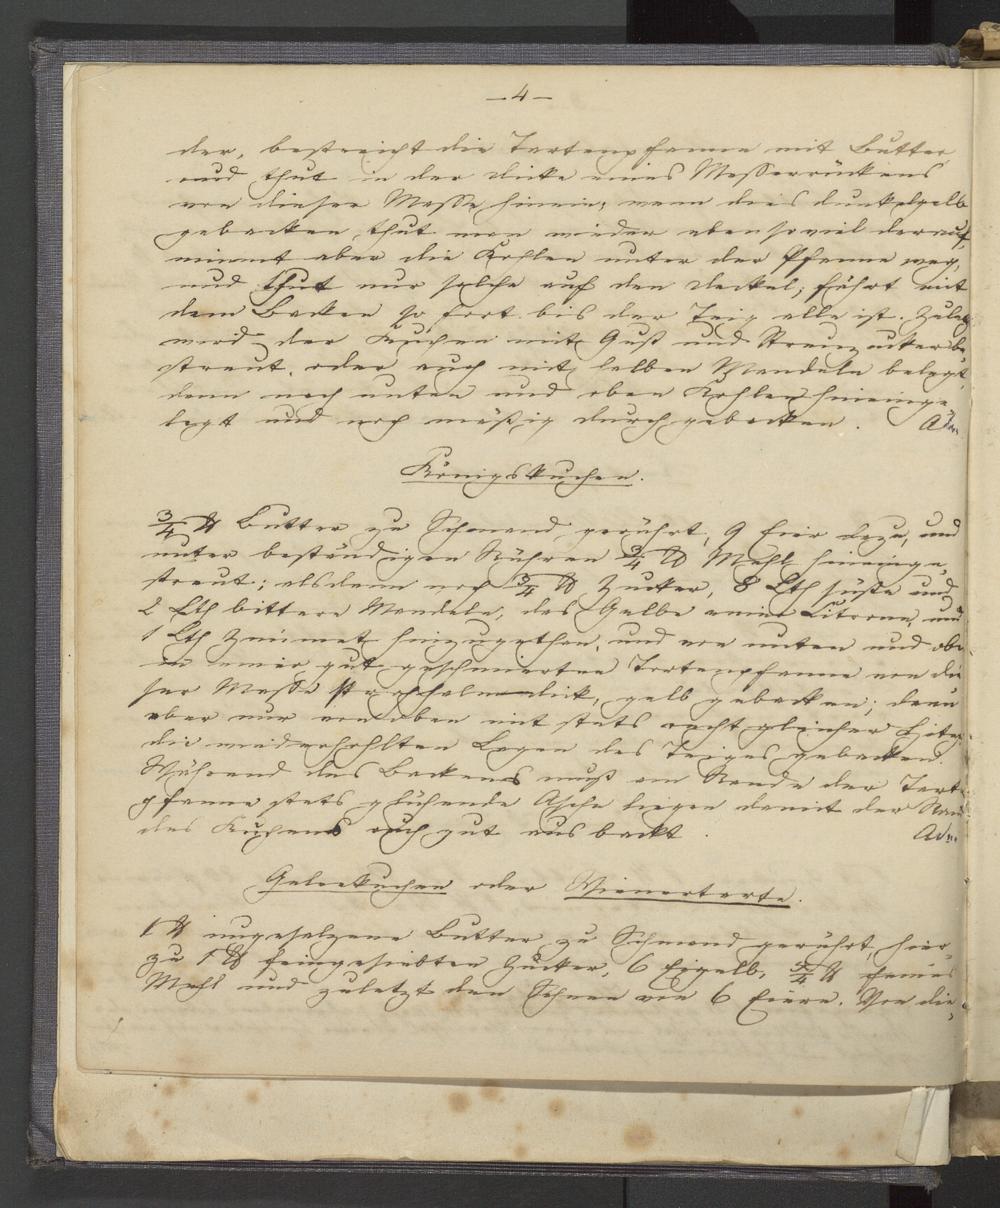 — 4 —
der, bestreicht die Tortenpfanne mit Butter
und thut in der Dicke eines Messerrückens
von dieser Masse hinein; wenn dies dunkelgelb
gebacken, thut man wieder eben so viel darauf,
nimmt aber die Kohlen unter der Pfanne weg,
und thut nur solche auf den Deckel; fährt mit
dem Backen so fort bis der Teig alle ist. Zuletzt
wird der Kuchen mit Guß und Streuzucker be
streut, oder auch mit halben Mandeln belegt,
dann noch unten und oben Kohlen hineinge
legt und noch mäßig durchgebacken.
Königskuchen.
3/4 ℔ Butter zu Schmand gerührt, 9 Eier dazu, und
unter beständigen Rühren 3/4 ℔ Mehl hineinge
streut; alsdann noch 3/4 ℔ Zucker, 8 Lth süße und
2 Lth bittere Mandeln, das Gelbe einer Citrone, und
1 Lth Zimmet hinzugethan, und von unten und oben
in einer gut geschmierten Tortenpfanne von die
ser Masse strohhalmendick, gelb gebacken; dann
aber nur von oben mit stets recht gleicher Hitze
die wiederhohlten Lagen des Teiges gebacken.
Während des Backens muß am Rande der Torten
pfanne stets glühende Asche liegen damit der Rand
des Kuchens auch gut ausbackt.
Geleekuchen oder Wienertorte.
1 ℔ ungesalzene Butter zu Schmand gerührt, hier
zu 1 ℔ feingesiebten Zucker, 6 Eigelb, 3/4 ℔ feines
Mehl und zuletzt den Schnee von 6 Eiern. Von die